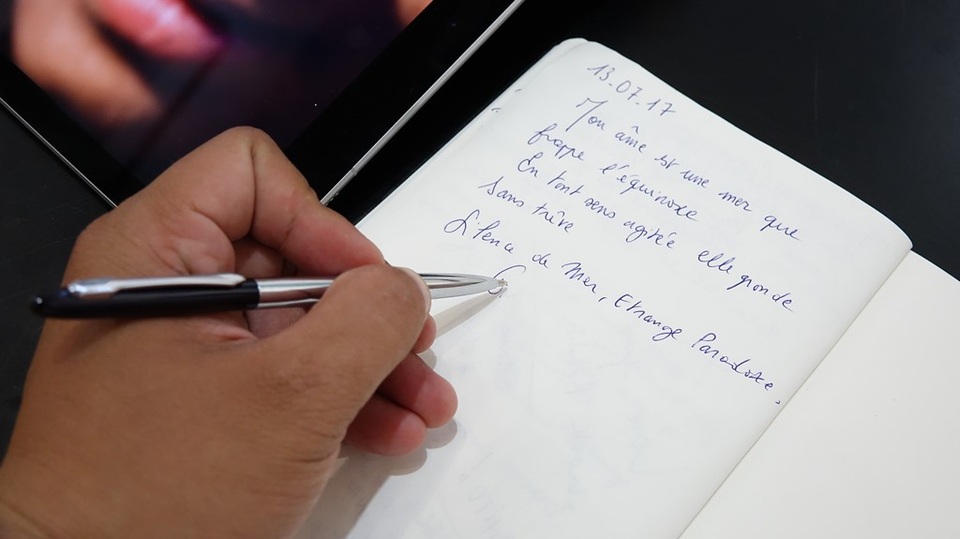 13.07.17
Mon âme est une mer que
frappe l'équinoxe
En tout sens agitée elle gronde
Sans trêve
Silence de Mer, Etrange Paradoxe.